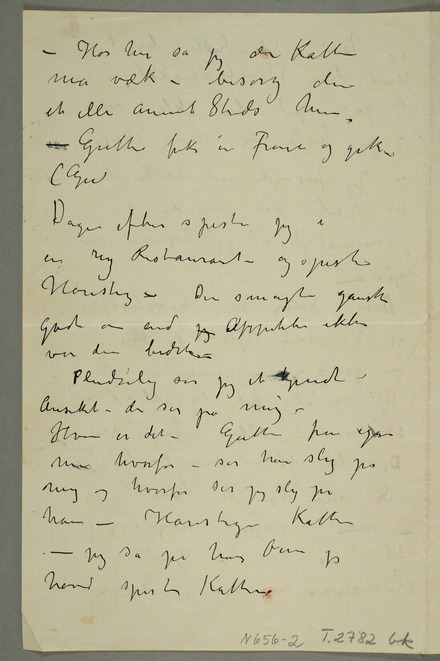 – Hør her sa jeg den Katten
må væk – besørg den
et eller annet Steds hen.
– Gutten fik en Franc og gik
(Gud
Dagen efter spiste jeg i
en ny Restaurant – og spiste
Haresteg – Den smagte ganske
godt om end jeg Appetiten ikke
var den bedste
Pludselig ser jeg et kjendt
Ansikt – der ser på mig –
Hvem er det – Gutten fra igår
men hvorfor – ser han slig på
mig og hvorfor ser jeg slig på
ham – Harestegen Katten
– jeg så på ham Om jeg
havd spist Katten
N656-2 T.2782